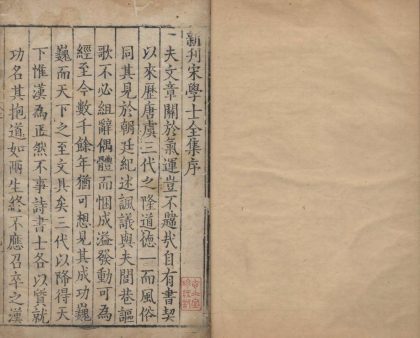 新刊宋學士全集序
夫文章關於氣運豈不韙哉自有書契
以來歷唐虞三代之隆道德一而風俗
同其見於朝廷紀述諷議與夫閭巷謳
歌不必組辭偶體而悃成溢發動可為
經至今數千餘年猶可想見其成功巍
巍而天下之至文具矣三代以降得天
下惟漢為正然不事詩書士各以質就
功名其抱道如兩生終不應召卒之漢